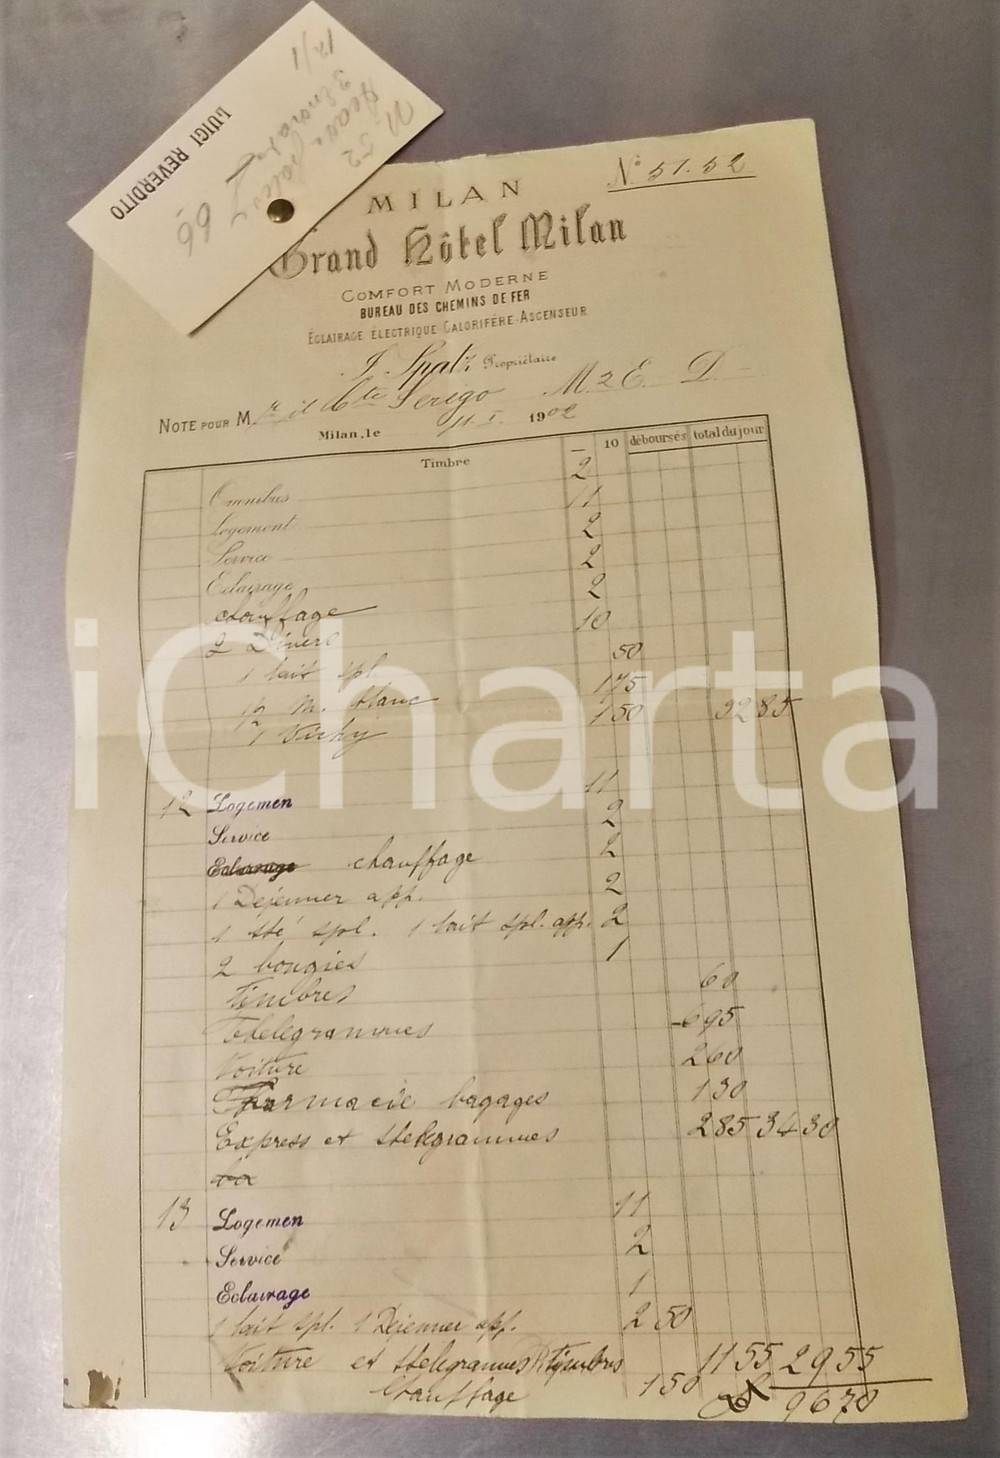 LUIGI REVERDITO
66
N. 52
12/1
Nº 51.52
MILAN
Grand Hôtel Milan
COMFORT MODERNE
BUREAU DES CHEMINS DE FER
ÉCLAIRAGE ÉLECTRIQUE-CALORIFÈRE-ASCENSEUR
J. Spatz Propriétaire
NOTE POUR M r il Cte Serego M 2 E. D.
Milan, le 11. I. 1902
Timbre 10 déboursés total du jour
Omnibus 2
Logement 11
Service 2
Eclairage 2
chauffage 2
2 Diners 10
1 lait spl. 50
1/2 M. blanc 1 75
1 Vichy 1 50 32 85
12 Logemen 11
Service 2
Eclairage chauffage 2
1 Dejeuner app. 2
1 thé spl. 1 lait spl. app. 2
2 bougies 1
Timbres 60
Telegrammes 6 95
Voiture 2 60
Farmacie bagages 1 30
Express et telegrammes 2 85 34 30
13 Logemen 11
Service 2
Eclairage 1
1 lait spl. 1 Dejeuner app. 2 50
Voiture et telegrammes Timbres 11 55 29 55
Chauffage 1 50 96 70
iCharta